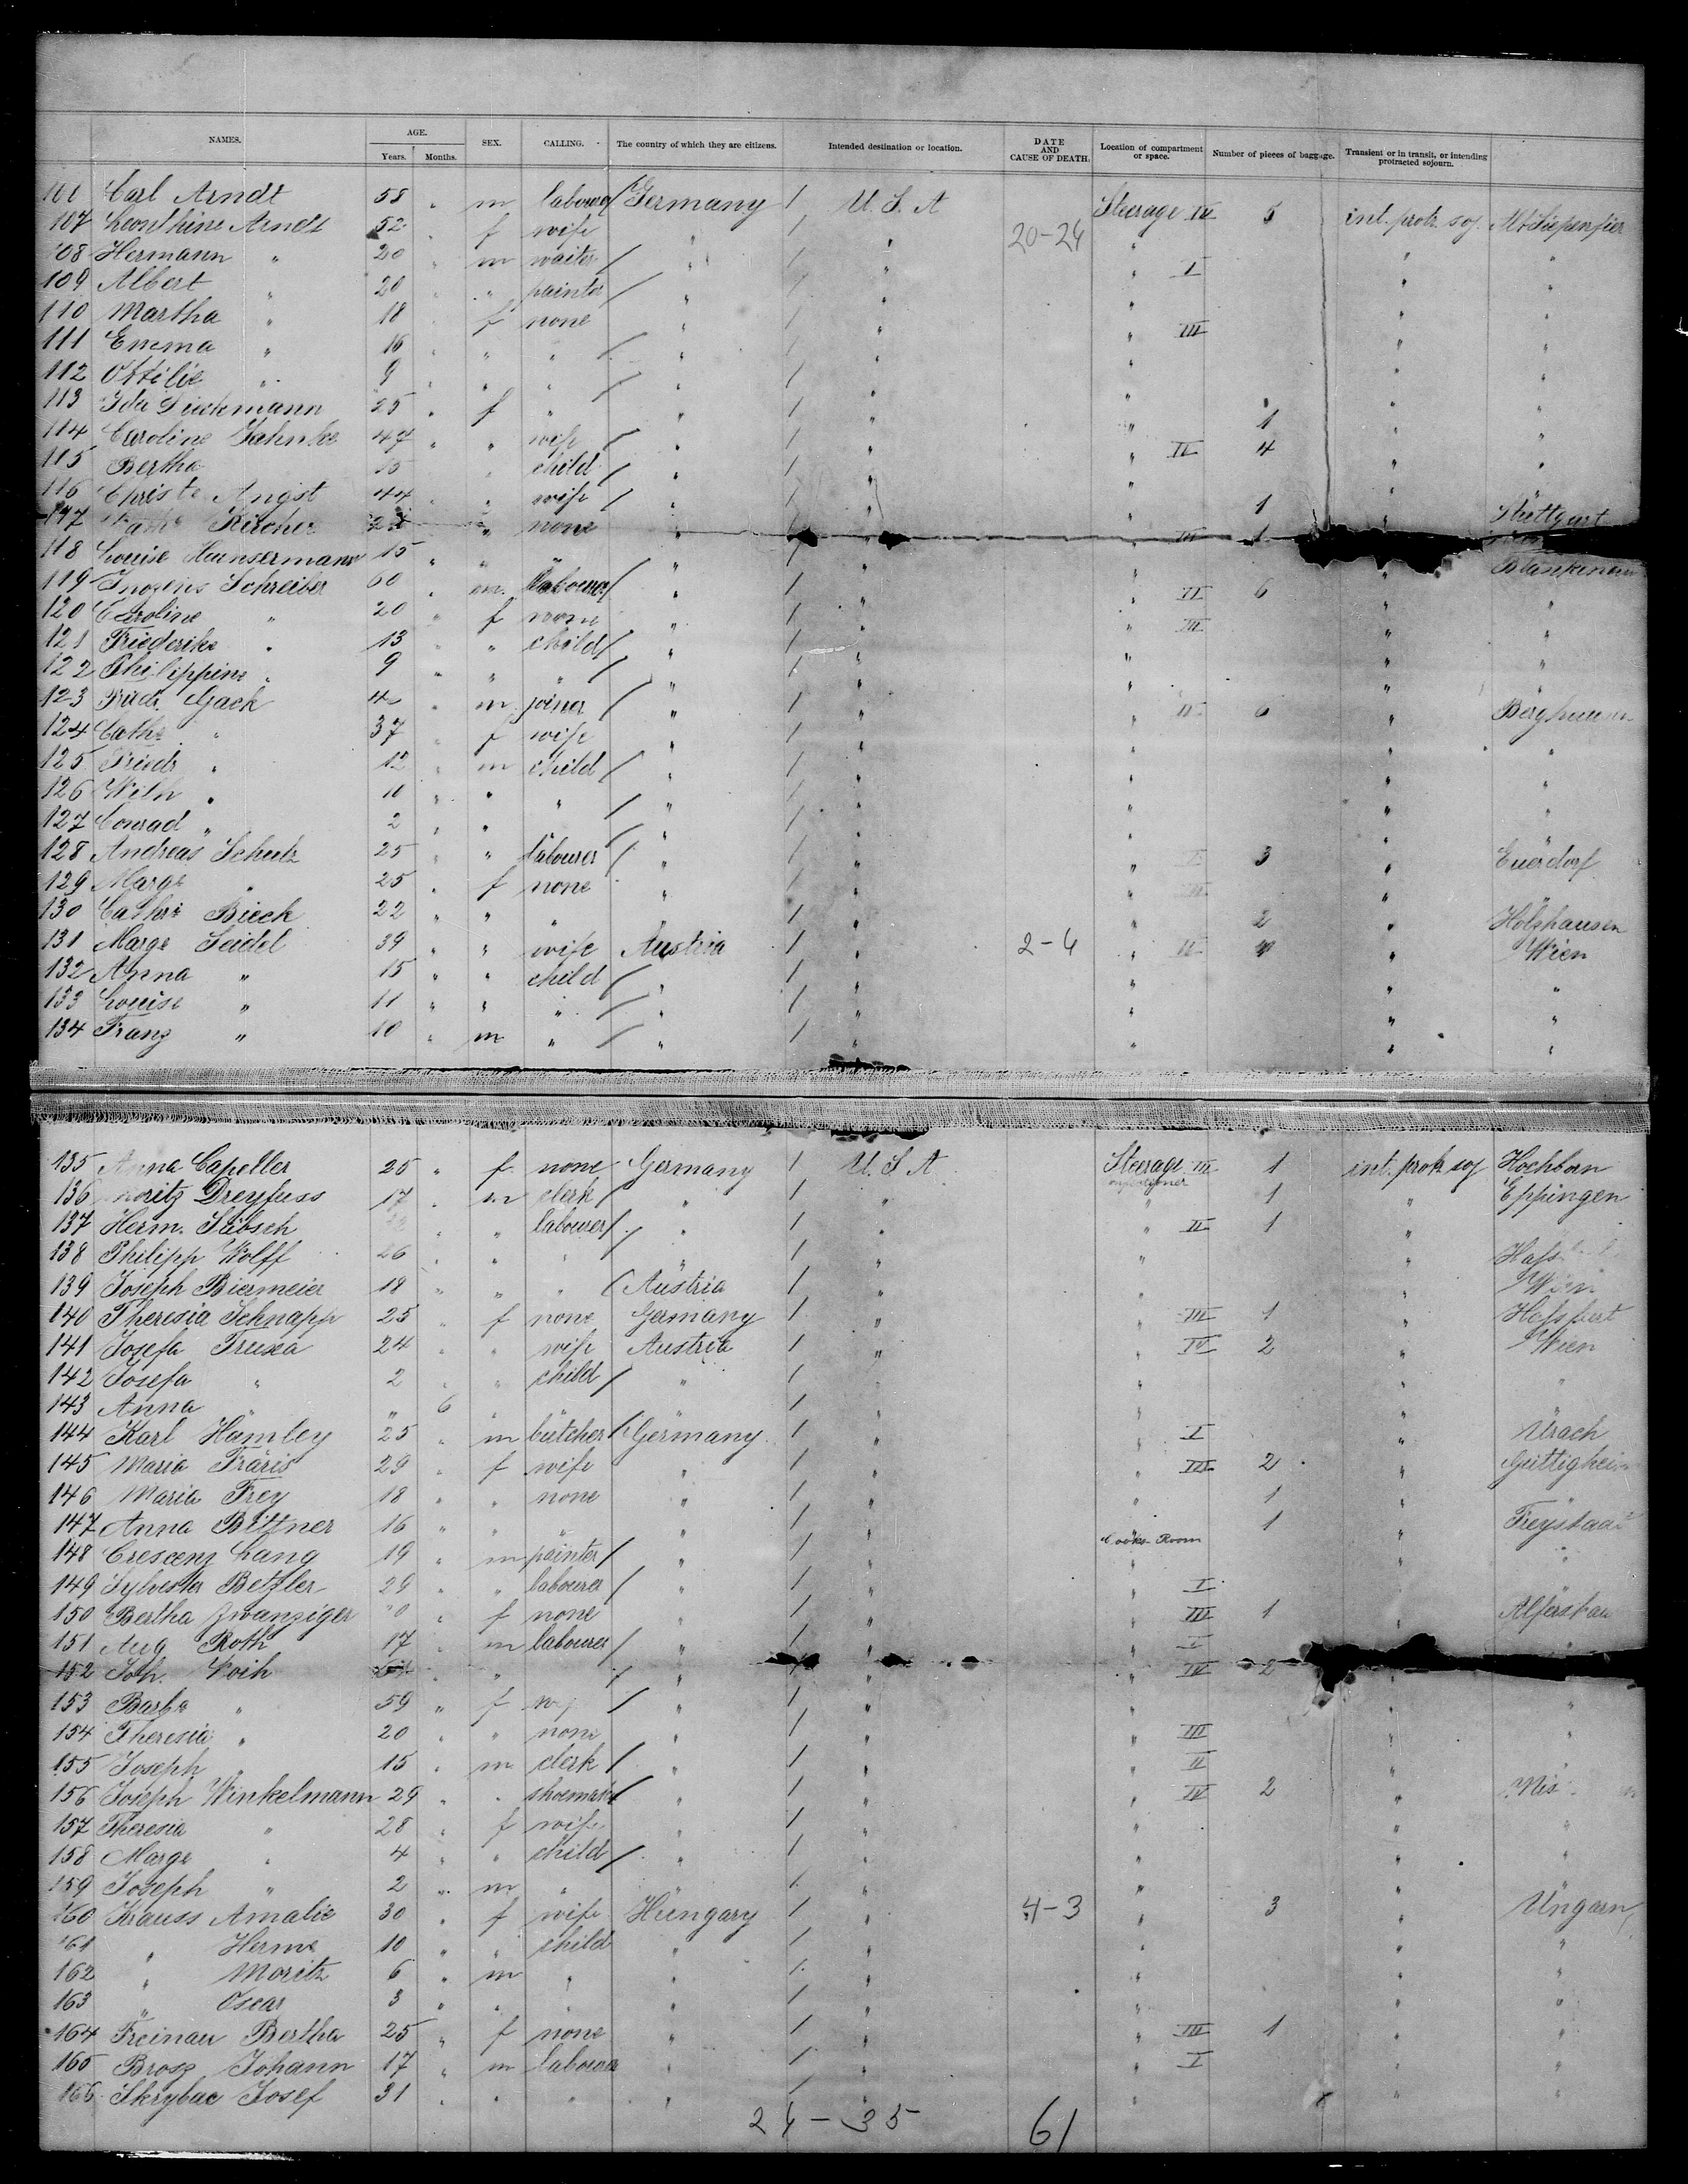 NAMES. AGE. Years. Months. SEX. CALLING. The country of which they are citizens. Intended destination or location. DATE AND CAUSE OF DEATH. Location of compartment or space. Number of pieces of baggage. Transient or in transit, or intending protracted sojourn.
Carl Arndt 58 " m labourer Germany 1 U. S. A Steerage III 5 int. protr. soj.
107 Arndt 52 " f wife " 1 " 20-24
108 Hermann " 20 " m waiter " 1 " " I " "
109 Albert " 20 " " painter " 1 " " " "
110 Martha " 18 " f none " 1 " " III " "
111 Emma " 16 " " " " 1 " " " "
112 Ottilie " 9 " " " " 1 " " " "
113 Ida Dieckmann 25 " f " " 1 " " 1 " "
114 Caroline Jahnke 47 " " wife " 1 " " II 4 " "
115 Bertha 15 " child " 1 " " " "
116 Angst 44 " " wife " 1 " " 1 " Stuttgart
117 Kircher " none " " III 1
118 Louise 15 " " " " 1 " " "
119 Schreiber 60 " m. labourer " 1 " " II 6 " "
120 Caroline " 20 " f none " 1 " " III " "
121 Friederike " 13 " " child " 1 " " " "
122 Philippine " 9 " " " " 1 " " " "
123 Friedr. Gack " m joiner " 1 " " II 6 " Berghausen
124 Cathe " 37 " f wife " 1 " " " "
125 Friedr " 12 " m child " 1 " " " "
126 Wilh " 11 " " " " 1 " " " "
127 Conrad " 2 " " " 1 " " "
128 Andreas Schulz 25 " " labourer " 1 " " I 3 " Euerdorf
129 Marge " 25 " f none " 1 " " III "
130 Bieck 22 " " " " 1 " " 2 " Holzhausen
131 Marge Seidel 39 " " wife Austria 1 " 2-4 " II 4 " Wien
132 Anna " 15 " " child " 1 " " " "
133 Louise " 11 " " " " 1 " " " "
134 Franz " 10 " m " " 1 " " " "
135 Anna Capeller 25 " f none Germany 1 U. S A Steerage III 1 int. protr soj Hochborn
136 Moritz Dreyfuss 17 " m clerk " 1 " " 1 " Eppingen
137 Herm. Säbsch " " labourer " 1 " " II 1 "
138 Philipp Wolff 26 " " " " 1 " " "
139 Joseph Biermeier 18 " " " Austria 1 " " " Wien
140 Theresia Schnapp 25 " f none Germany 1 " " III 1 " Hassfurt
141 Josefa Truxa 24 " " wife Austria 1 " " IV 2 " Wien
142 Josefa " 2 " " child " 1 " " " "
143 Anna " " 6 " " 1 " " "
144 Karl Hämley 25 " m butcher Germany 1 " " I " Urach
145 Maria 29 " f wife " 1 " " III 2 "
146 Maria Frey 18 " " none " 1 " " 1 "
147 Anna Bittner 16 " " " " 1 " " 1 " Freystadt
148 Crescenz Lang 19 " m painter " 1 " Cooks Room " "
149 Sylvester Betzler 29 " " labourer " 1 " " I "
150 Bertha Zwanziger " f none " 1 " " III 1 "
151 Aug Roth 17 " m labourer " 1 " " I "
152 Joh. Woih " " " " " IV 2
153 Barba " 59 " f " 1 " " " "
154 Theresia " 20 " " none " 1 " " III " "
155 Joseph " 15 " m clerk " 1 " " II "
156 Joseph Winkelmann 29 " " shoemaker " 1 " " IV 2 "
157 Theresia " 28 " f wife " 1 " " " "
158 Marge " 4 " " child " 1 " " " "
159 Joseph " 2 " m " " 1 " " " "
160 Krauss Amalie 30 " f wife Hungary 1 " 4-3 " 3 " Ungarn
161 " Herme 10 " " child " 1 " " " "
162 " Moritz 6 " m " " 1 " " " "
163 " Oscar 3 " " " " 1 " " " "
164 Freinau Bertha 25 " f none " 1 " " III 1 " "
165 Brosz Johann 17 " m labourer " 1 " " I " "
166 Skrybac Josef 31 " " " " 1 " " " "
24-35 61